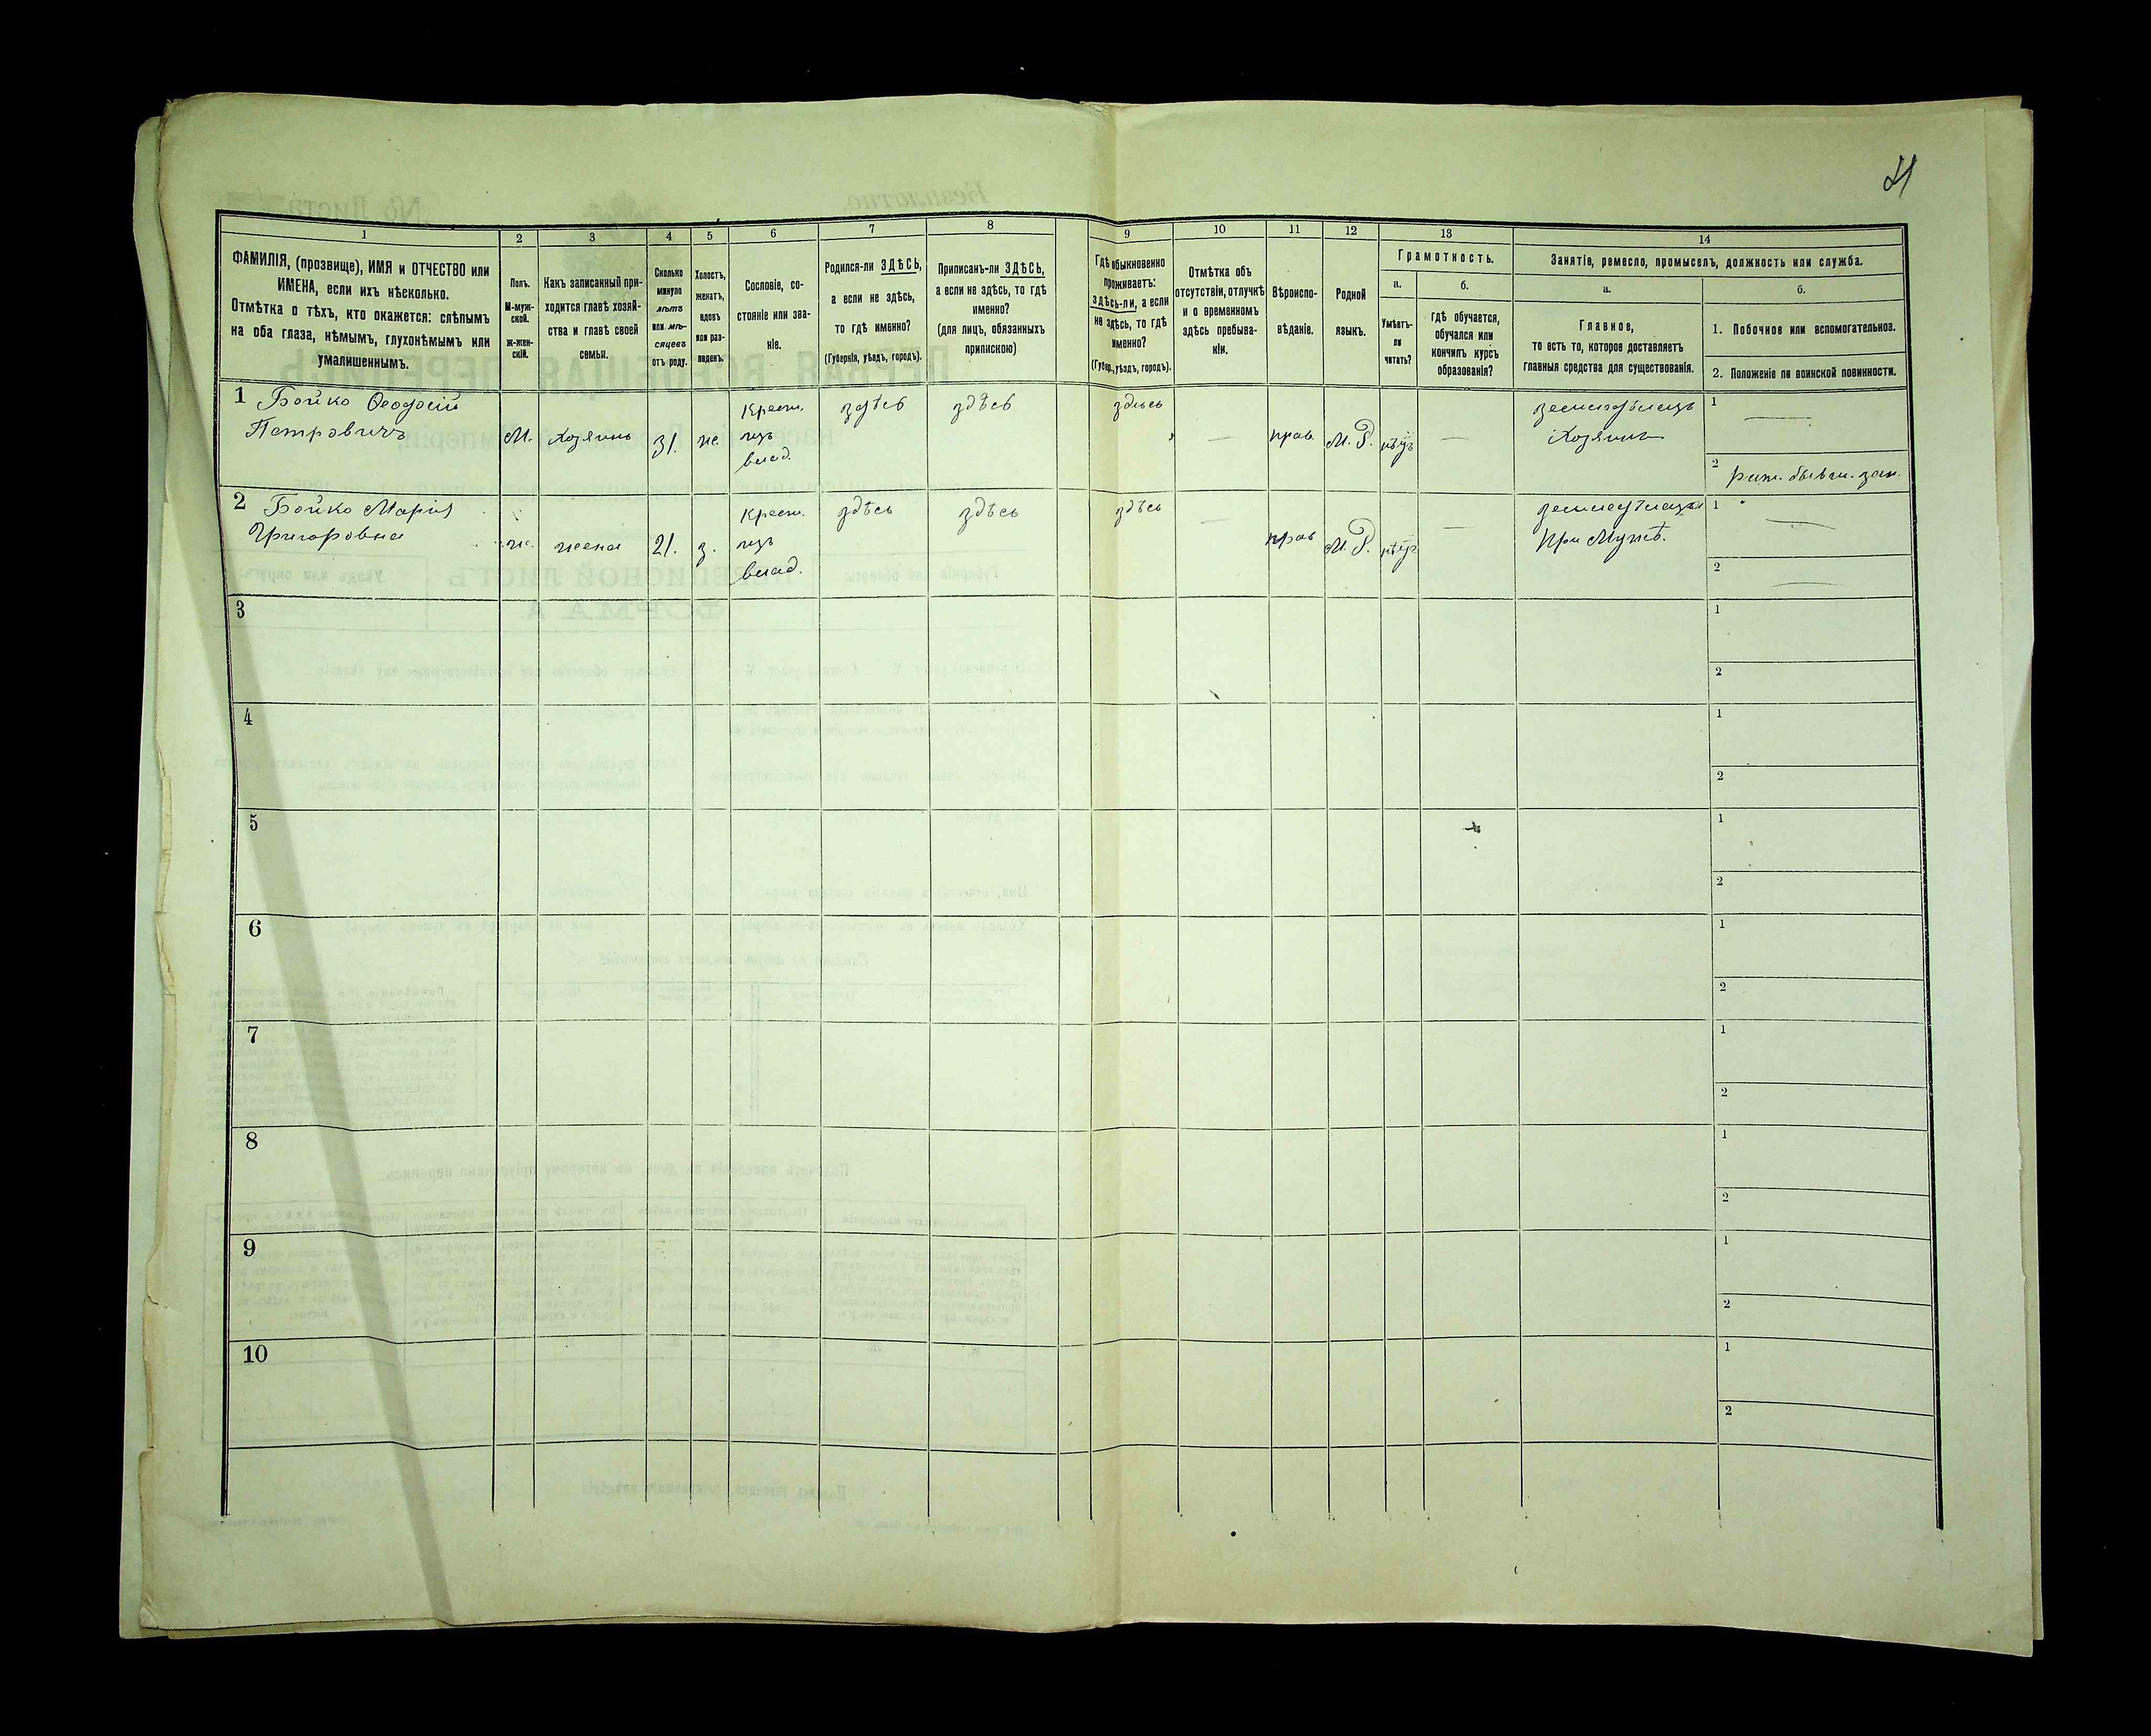 1
2
3
4
5
6
7
8
9
10
11
12
13
14
ФАМИЛІЯ, (прозвище), ИМЯ и ОТЧЕСТВО или
ИМЕНА, если ихъ нѣсколько.
Отмѣтка о тѣхъ, кто окажется: слѣпымъ
на оба глаза, нѣмымъ, глухонѣмымъ или
умалишеннымъ.
Полъ.
М-муж-
ской.
Ж-жен-
скій.
Какъ записанный при-
ходится главѣ хозяй-
ства и главѣ своей
семьи.
Сколько
минуло
лѣтъ
или мѣ-
сяцевъ
отъ роду.
Холостъ,
женатъ,
вдовъ
или раз-
веденъ.
Сословіе, со-
стояніе или зва-
ніе.
Родился-ли ЗДѢСЬ,
а если не здѣсь,
то гдѣ именно?
(Губернія, уѣздъ, городъ).
Приписанъ-ли ЗДѢСЬ,
а если не здѣсь, то гдѣ
именно?
(для лицъ, обязанныхъ
припискою)
Гдѣ обыкновенно
проживаетъ:
здѣсь-ли, а если
не здѣсь, то гдѣ
именно?
(Губер., уѣздъ, городъ).
Отмѣтка объ
отсутствіи, отлучкѣ
и о временномъ
здѣсь пребыва-
ніи.
Вѣроиспо-
вѣданіе.
Родной
языкъ.
Грамотность.
а.
Умѣетъ-
ли
читать?
б.
гдѣ обучается,
обучался или
кончилъ курсъ
образованія?
Занятіе, ремесло, промыселъ, должность или служба.
а.
Главное,
то есть то, которое доставляетъ
главныя средства для существованія.
б.
1. Побочное или вспомогательное.
2. Положеніе по воинской повинности.
1 Бойко Ѳеодосій
Петровичъ
М.
хозяинъ
31.
ж.
Крест.
изъ
влад.
здѣсь
здѣсь
здѣсь
—
прав.
М. Р.
нѣтъ
—
земледѣлецъ
Хозяинъ
1 —
2
2 Бойко Марія
Григоровна
ж.
жена
21.
з.
Крест.
изъ
влад.
здѣсь
здѣсь
здѣсь
—
прав
М. Р.
нѣтъ
—
При Мужѣ.
1 —
2 —
3
1
2
4
1
2
5
1
2
6
1
2
7
1
2
8
1
2
9
1
2
10
1
2